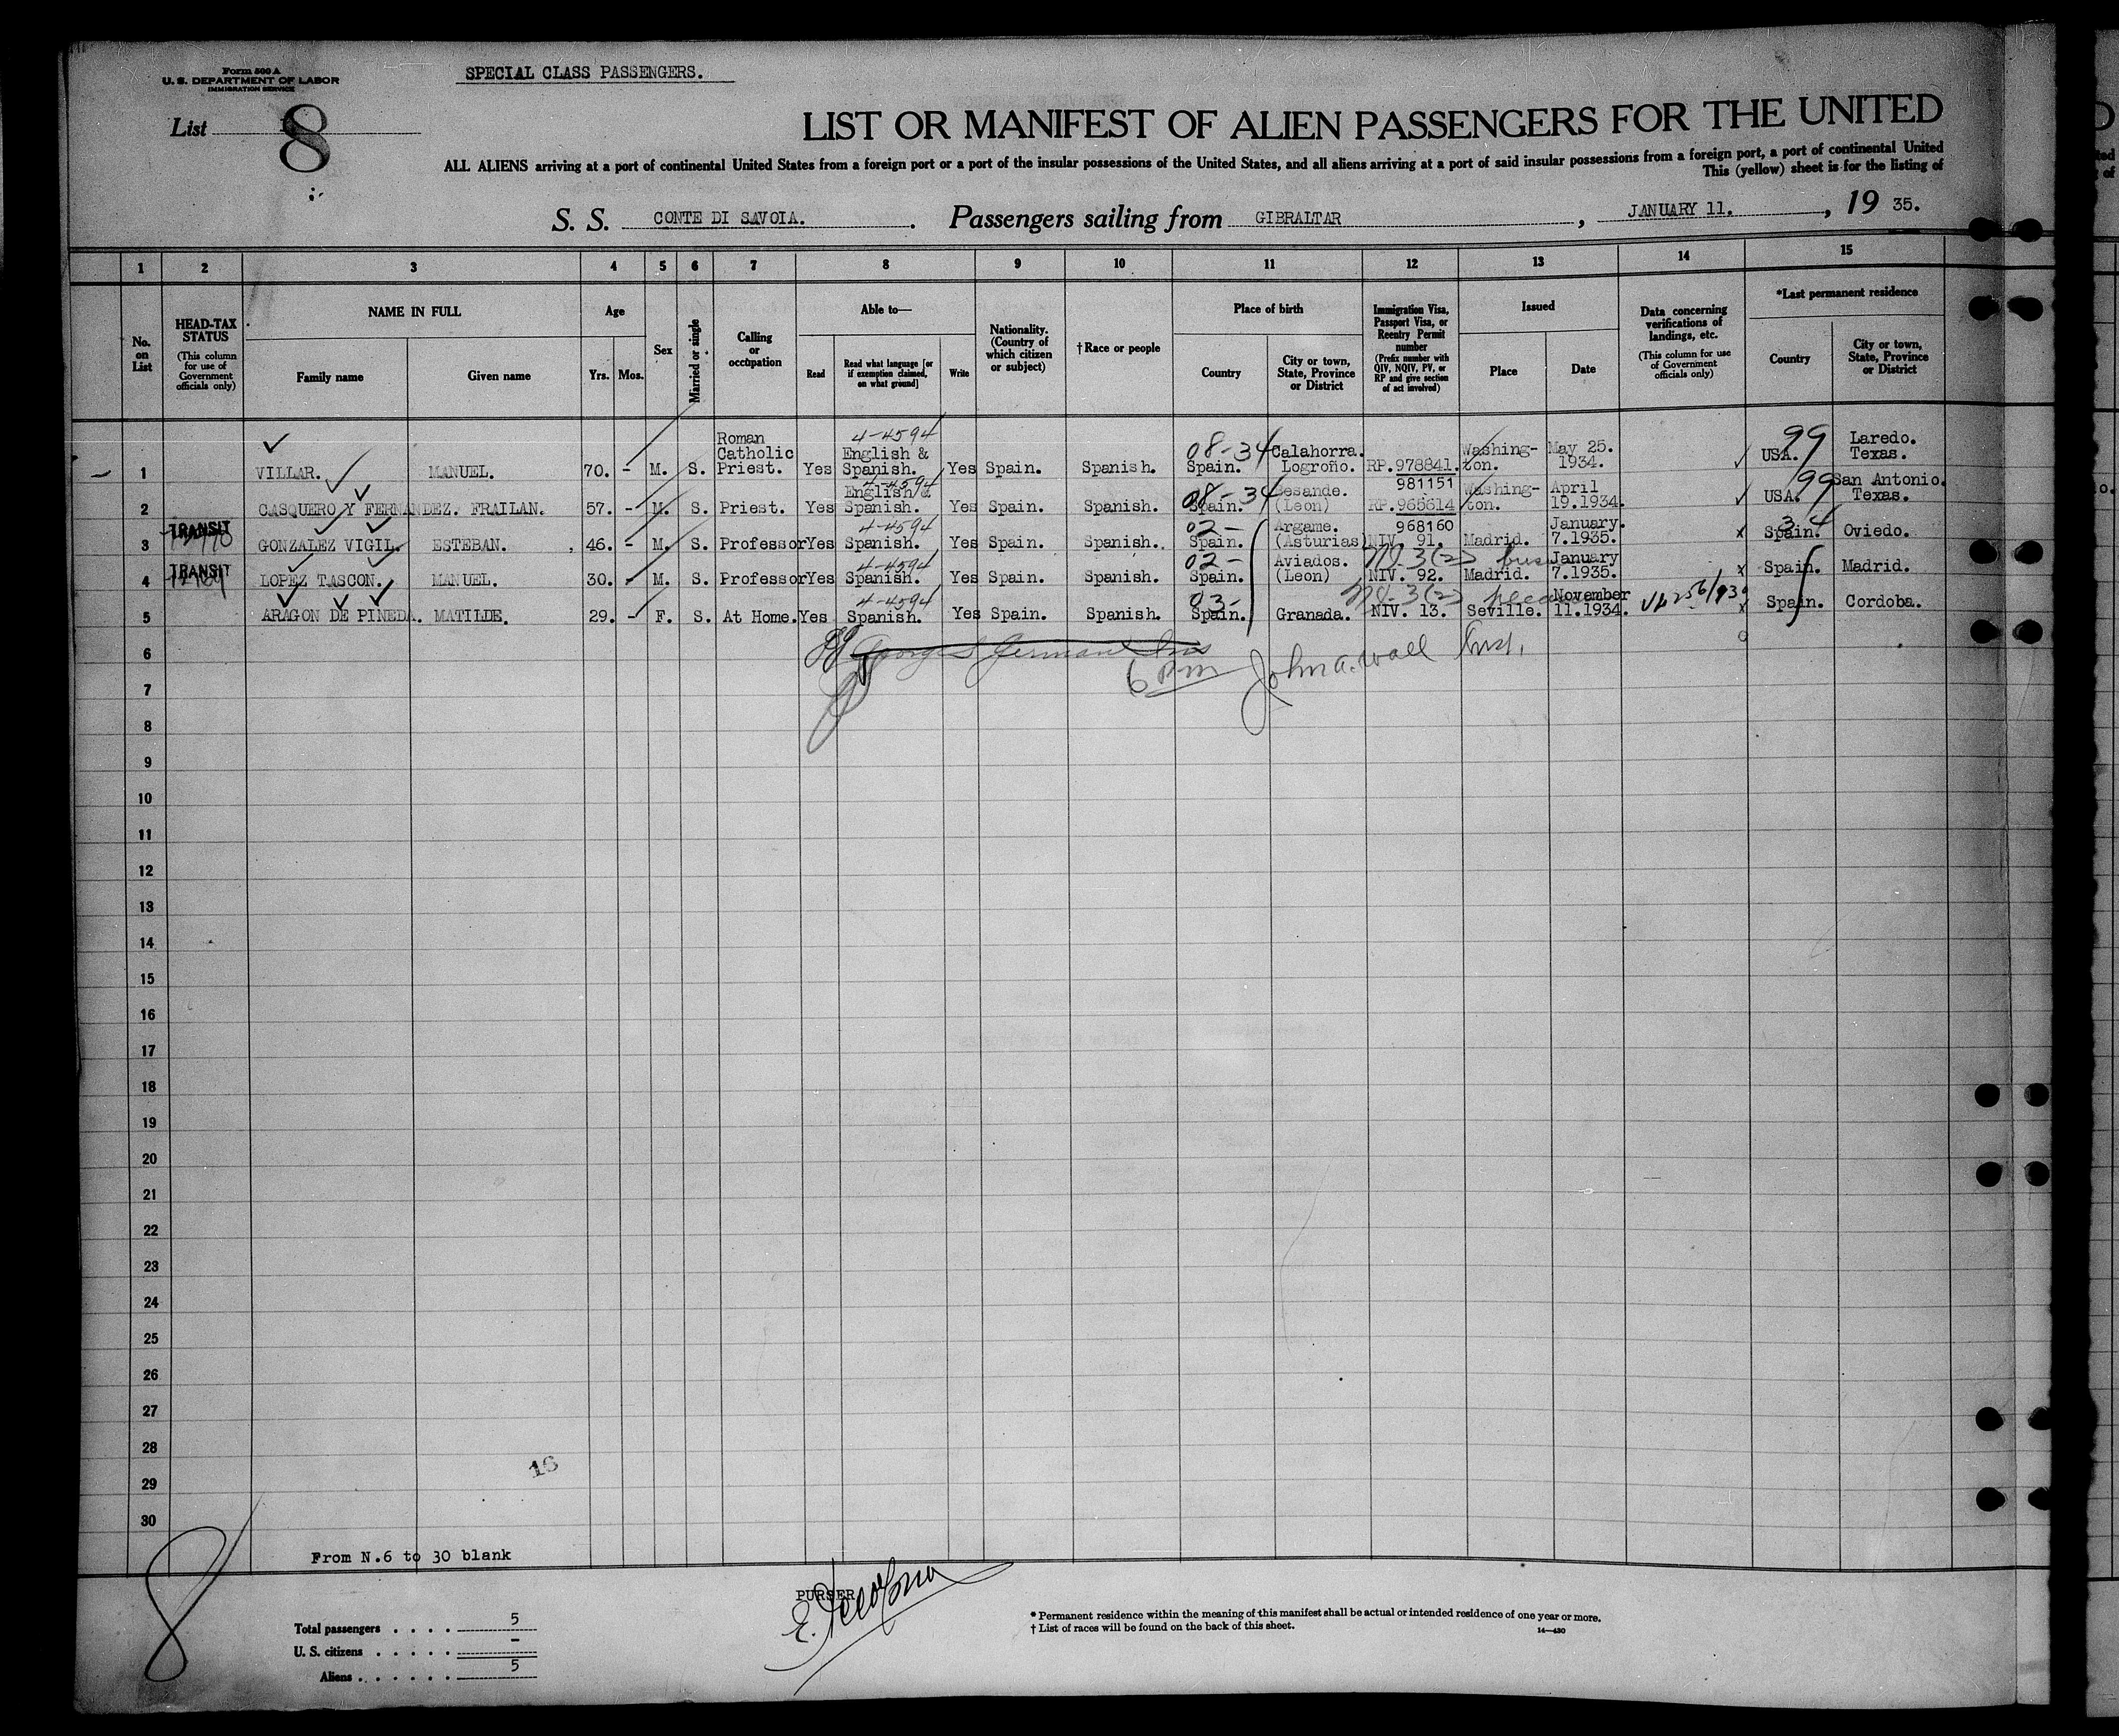 Form 500 A
U. S. DEPARTMENT OF LABOR
IMMIGRATION SERVICE
SPECIAL CLASS PASSENGERS.
List 8
LIST OR MANIFEST OF ALIEN PASSENGERS FOR THE UNITED
ALL ALIENS arriving at a port of continental United States from a foreign port or a port of the insular possessions of the United States, and all aliens arriving at a port of said insular possessions from a foreign port, a port of continental United
This (yellow) sheet is for the listing of
S. S. CONTE DI SAVOIA. Passengers sailing from GIBRALTAR, JANUARY 11., 19 35.
1 2 3 4 5 6 7 8 9 10 11 12 13 14 15
No. on List
HEAD-TAX STATUS
(This column for use of Government officials only)
NAME IN FULL
Family name
Given name
Age
Yrs. Mos.
Sex
Married or single
Calling or occupation
Able to—
Read
Read what language [or if exemption claimed, on what ground]
Write
Nationality. (Country of which citizen or subject)
† Race or people
Place of birth
Country
City or town, State, Province or District
Immigration Visa, Passport Visa, or Reentry Permit number
(Prefix number with QIV, NQIV, PV, or RP and give section of act involved)
Issued
Place
Date
Data concerning verifications of landings, etc.
(This column for use of Government officials only)
*Last permanent residence
Country
City or town, State, Province or District
4-4594 08-34 99
1 VILLAR. MANUEL. 70. - M. S. Roman Catholic Priest. Yes English & Spanish. Yes Spain. Spanish. Spain. Calahorra. Logroño. RP.978841. Washington. May 25. 1934. USA. Laredo. Texas.
4-4594 08-34 981151 99
2 CASQUERO Y FERNANDEZ. FRAILAN. 57. - M. S. Priest. Yes English & Spanish. Yes Spain. Spanish. Spain. Sesande. (Leon) RP.965614 Washington. April 19.1934. USA. San Antonio. Texas.
TRANSIT 4-4594 02- 968160 34
3 GONZALEZ VIGIL. ESTEBAN. 46. - M. S. Professor Yes Spanish. Yes Spain. Spanish. Spain. Argame. (Asturias) NIV. 91. Madrid. January. 7.1935. Spain. Oviedo.
TRANSIT 4-4594 02- 3(2) bus
4 LOPEZ TASCON. MANUEL. 30. - M. S. Professor Yes Spanish. Yes Spain. Spanish. Spain. Aviados. (Leon) NIV. 92. Madrid. January 7.1935. Spain. Madrid.
4-4594 03- 3(2)
5 ARAGON DE PINEDA. MATILDE. 29. - F. S. At Home. Yes Spanish. Yes Spain. Spanish. Spain. Granada. NIV. 13. Seville. November 11.1934. Spain. Cordoba.
6
6 pm John A. Wall Insp.
7
8
9
10
11
12
13
14
15
16
17
18
19
20
21
22
23
24
25
26
27
28
29
16
30
From N.6 to 30 blank
8
PURSER
Total passengers . . . . . 5
U. S. citizens . . . . . -
Aliens . . . . . . 5
* Permanent residence within the meaning of this manifest shall be actual or intended residence of one year or more.
† List of races will be found on the back of this sheet.
14—430